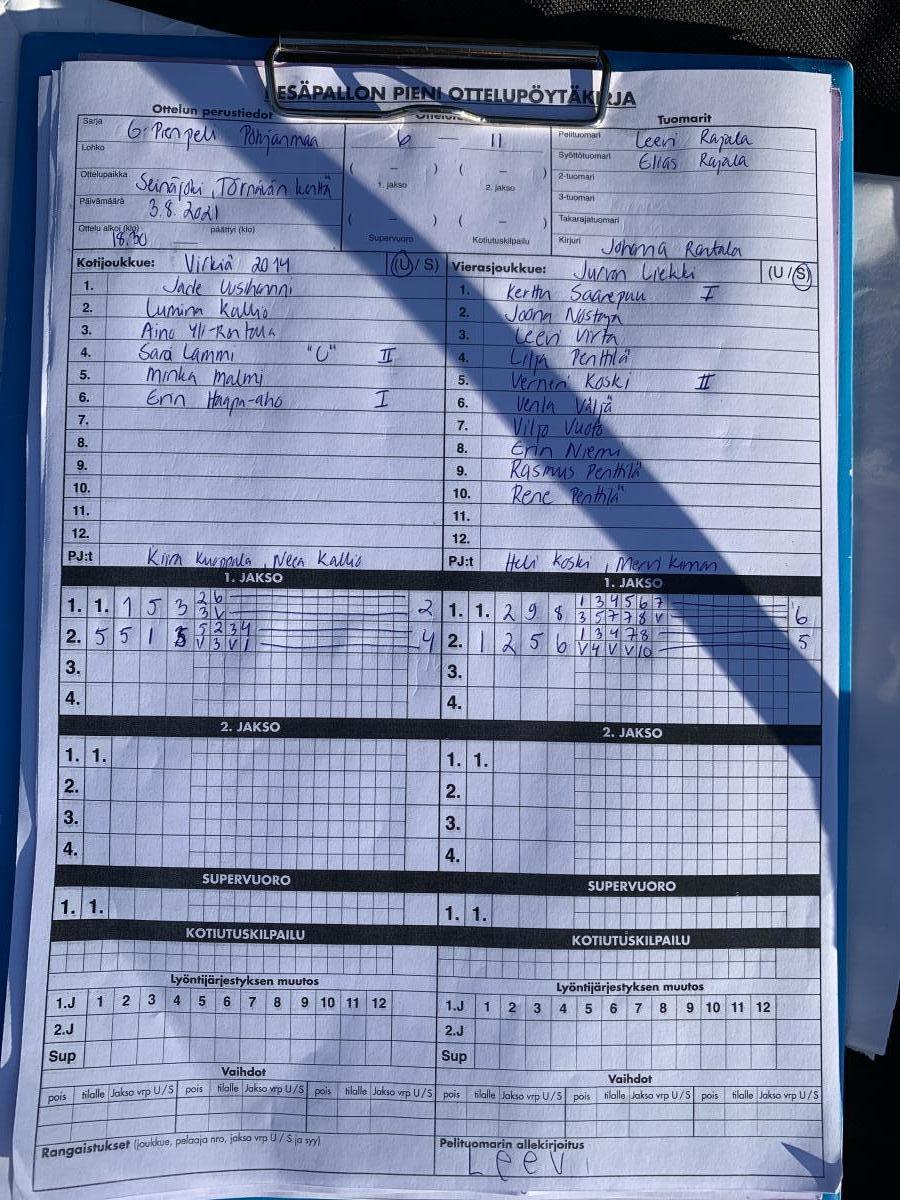 ESÄPALLON PIENI OTTELUPÖYTÄKIRJA
Ottelun perustiedot
Tuomarit
Sarja G-Pienpeli Pohjanmaa
6 – 11
Pelituomari Leevi Rajala
Lohko
Syöttötuomari Elias Rajala
( – ) ( – )
1. jakso 2. jakso
2-tuomari
Ottelupaikka Seinäjoki, Törnävän kenttä
3-tuomari
Päivämäärä 3.8.2021
( – ) ( – )
Takarajatuomari
Ottelu alkoi (klo) 18.30 päättyi (klo)
Supervuoro Kotiutuskilpailu
Kirjuri Johanna Rantala
Kotijoukkue: Virkiä 2014 (U / S)
1. Jade Uusihanni
2. Lumina Kallio
3. Aino Yli-Rantala
4. Sara Lammi "C" II
5. Minka Malmi
6. Erin Haapa-aho I
7.
8.
9.
10.
11.
12.
PJ:t Kiira Kurppala, Neea Kallio
Vierasjoukkue: Jurvan Liekki (U / S)
1. Kerttu Saarepuu I
2. Joona
3. Leevi Virta
4. Lilja Penttilä
5. Verneri Koski II
6. Venla Väljä
7. Viljo
8. Erin Niemi
9. Rasmus Penttilä
10. Rene Penttilä
11.
12.
PJ:t Heli Koski, Mervi
1. JAKSO
1. 1. 1 5 3 2 6 2
3 V
2. 5 5 1 3 5 2 3 4 4
V 3 V 1
3.
4.
1. JAKSO
1. 1. 2 9 8 1 3 4 5 6 7 6
3 5 7 7 8 V
2. 1 2 5 6 1 3 4 7 8 5
V 4 V V 10
3.
4.
2. JAKSO
1. 1.
2.
3.
4.
2. JAKSO
1. 1.
2.
3.
4.
SUPERVUORO
1. 1.
SUPERVUORO
1. 1.
KOTIUTUSKILPAILU
KOTIUTUSKILPAILU
Lyöntijärjestyksen muutos
1.J 1 2 3 4 5 6 7 8 9 10 11 12
2.J
Sup
Lyöntijärjestyksen muutos
1.J 1 2 3 4 5 6 7 8 9 10 11 12
2.J
Sup
Vaihdot
pois tilalle Jakso vrp U/S pois tilalle Jakso vrp U/S pois tilalle Jakso vrp U/S
Vaihdot
pois tilalle Jakso vrp U/S pois tilalle Jakso vrp U/S pois tilalle Jakso vrp U/S
Rangaistukset (joukkue, pelaaja nro, jakso vrp U / S ja syy)
Pelituomarin allekirjoitus
Leevi